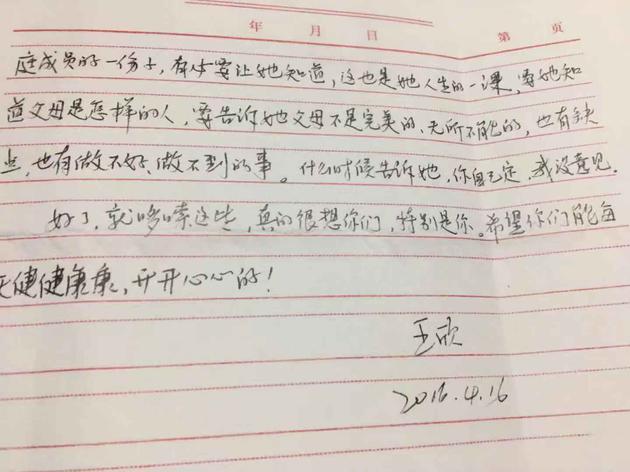 年 月 日 第 页
庭成员的一份子,有必要让她知道,这也是她人生的一课,要她知
道父母是怎样的人,要告诉她父母不是完美的、无所不能的,也有缺
点,也有做不好、做不到的事。什么时候告诉她,你自己定,我没意见。
好了,就哆嗦这些,真的很想你们,特别是你。希望你们能每
天健健康康,开开心心的!
王欣
2016.4.16